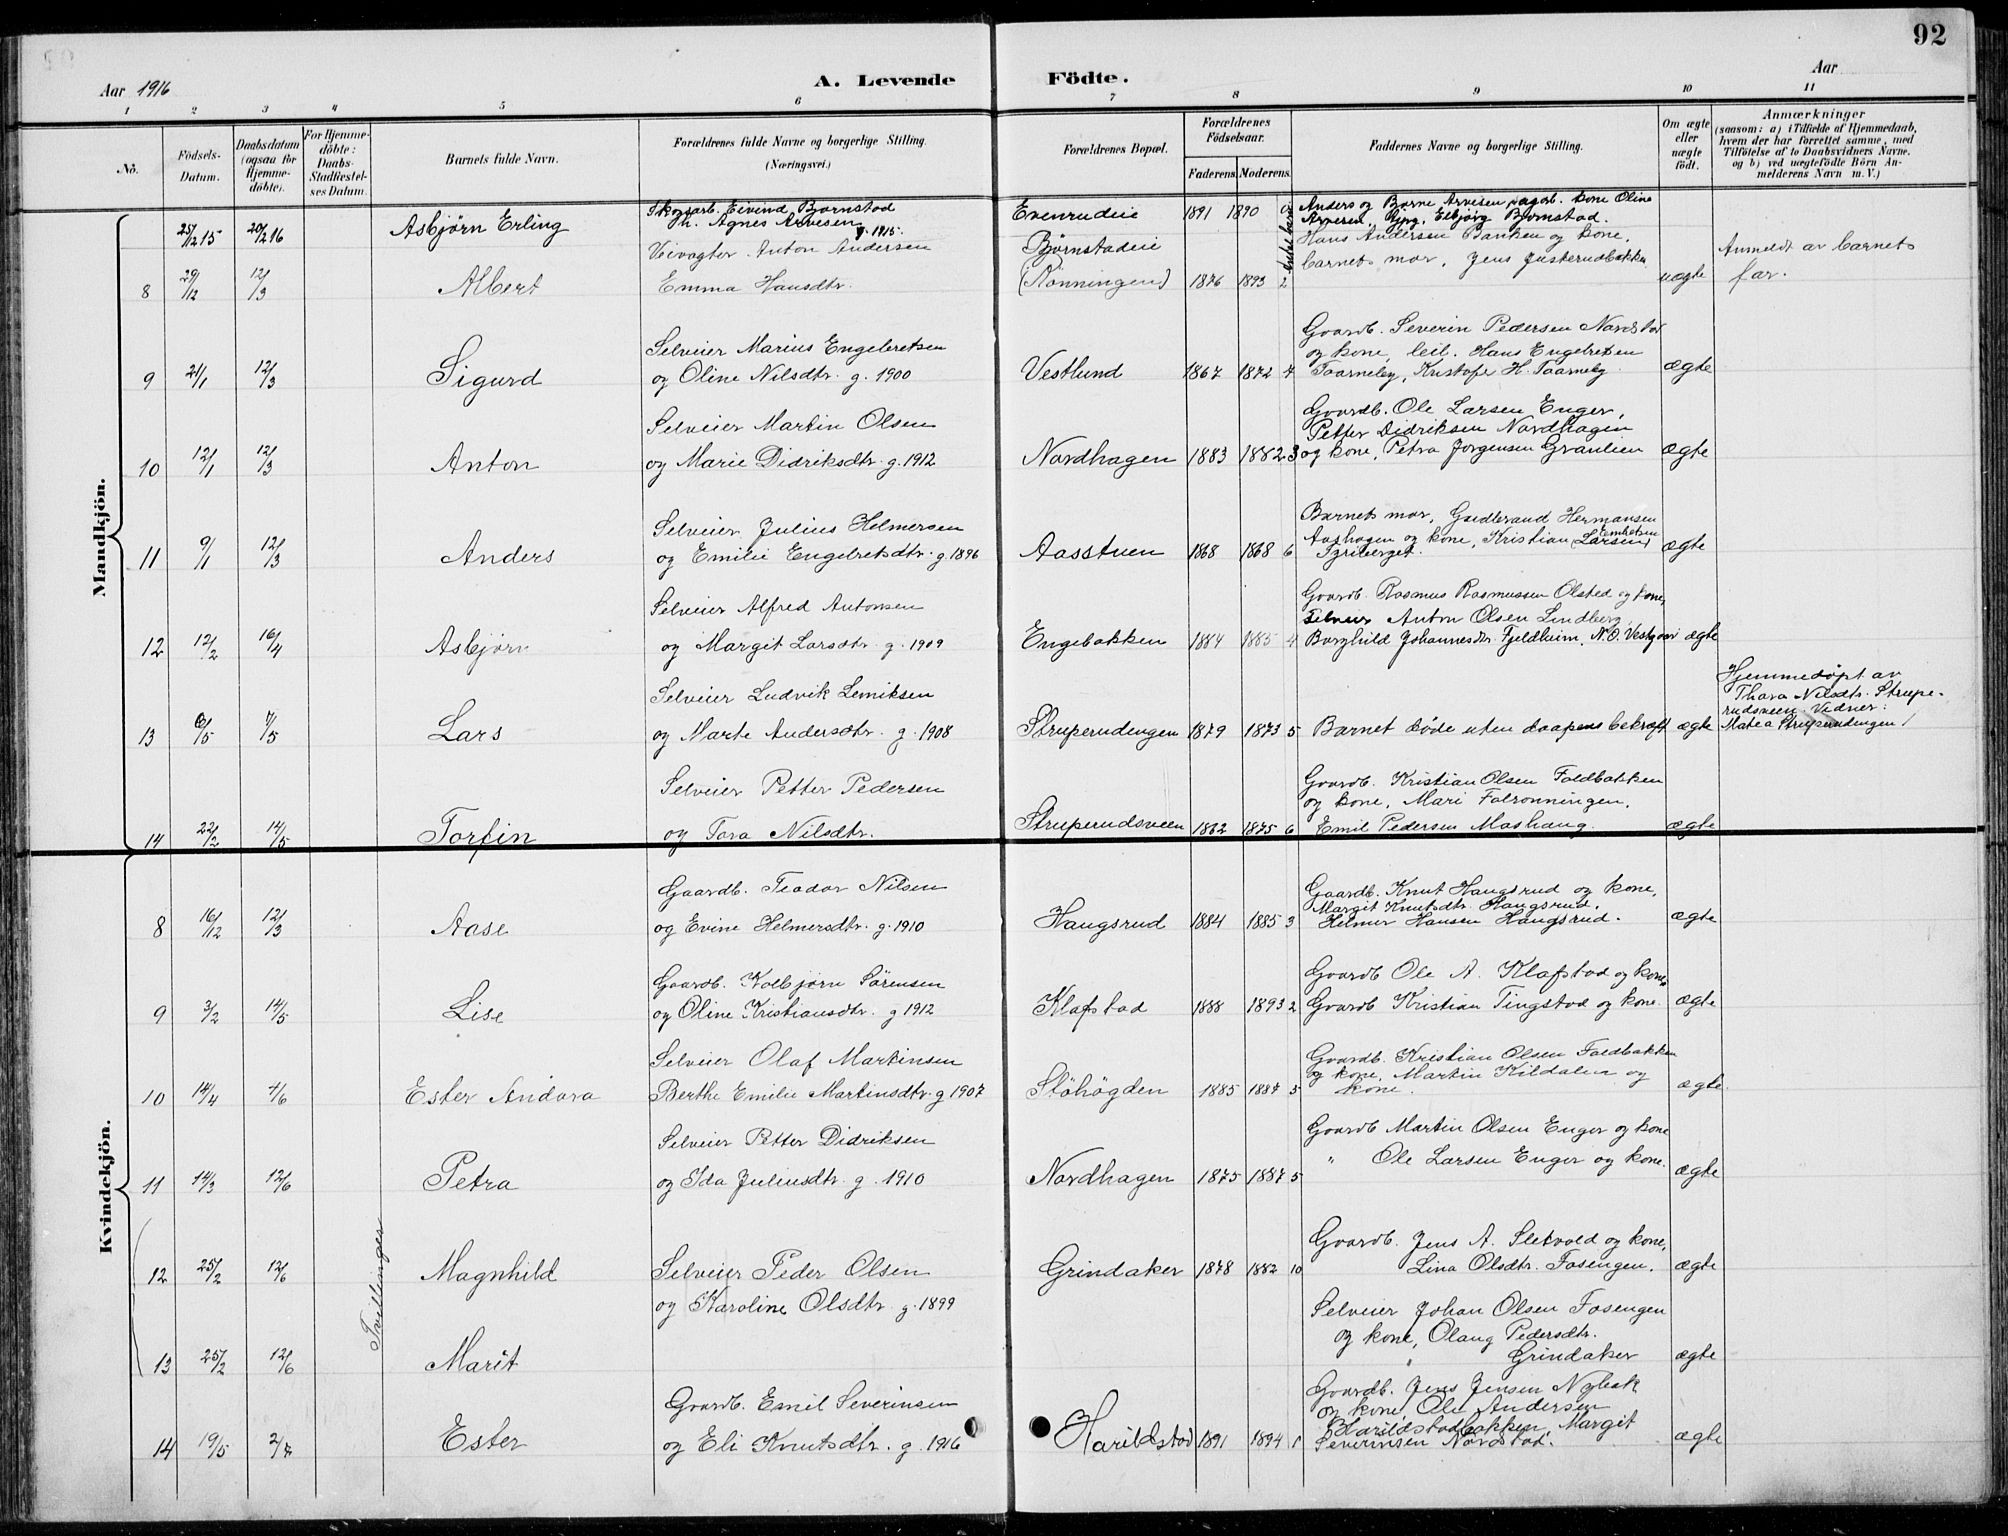 92
Aar 1916
A. Levende Födte.
Aar
1 2 3 4 5 6 7 8 9 10 11
No.
Födsels-Datum.
Daabsdatum (ogsaa for Hjemme-döbte).
For Hjemme-döbte: Daabs-Stadfæstel-ses Datum.
Barnets fulde Navn.
Forældrenes fulde Navne og borgerlige Stilling.
(Næringsvei.)
Forældrenes Bopæl.
Forældrenes Födselsaar.
Faderens. Moderens.
Faddernes Navne og borgerlige Stilling.
Om ægte eller uægte födt.
Anmærkninger
(saasom: a) i Tilfælde af Hjemmedaab,
hvem der har forrettet samme, med
Tilföielse af to Daabsvidners Navne.
og b) ved uægtefödte Börn An-
melderens Navn m. V.)
Mandkjön.
25/12 15 20/2 16 Asbjørn Erling
Skogsarb. Eivind Bjørnstad
h. Agnes Arvesen g. 1915.
Evenrudeie 1891 1890
Anders og Barne Arvesen, kone Olina
Arvesen, Elbjørg Bjørnstad.
8 29/12 12/3 Albert
Veivogter Anton Andersen
Emma Hansdtr.
Bjørnstadeie
(Rønningen) 1876 1893 2
Hans Andersen Banken og kone,
barnets mor, Jens Justerudbakken
uægte
Anmeldt av barnets
far.
9 21/1 12/3 Sigurd
Selveier Marius Engebretsen
og Oline Nilsdtr. g. 1900
Vestlund 1867 1872 7
Gaardb. Severin Pedersen Nordstad
og kone, leil. Hans Engebretsen
Taarneby, Kristofer H. Taarneby.
ægte
10 12/1 12/3 Anton
Selveier Martin Olsen
og Marie Didriksdtr. g. 1912
Nordhagen 1883 1882 3
Gaardb. Ole Larsen Enger,
Petter Didriksen Nordhagen
og kone, Petra Jørgensen Granlien
ægte
11 9/1 12/3 Anders
Selveier Julius Helmersen
og Emilie Engebretsdtr. g. 1896
Aasstuen 1868 1868 6
Barnets mor, Gudbrand Hermansen
Aashagen og kone, Kristian (Larsen)
Tyriberget.
ægte
12 12/2 16/4 Asbjørn
Selveier Alfred Antonsen
og Margit Larsdtr. g. 1909
Engebakken 1884 1885 4
Gaardb. Rasmus Rasmussen Olsted og kone,
Selveier Anton Olsen Lindberg,
Borghild Johannesdtr. Fjeldheim, N.O. Vestgaar
ægte
13 6/5 7/5 Lars
Selveier Ludvik Lemiksen
og Marte Andersdtr. g. 1908
Struperudengen 1879 1873 5
Barnet døde uten daapens bekræft
ægte
Hjemmedøpt av
Thora Nilsdtr. Strupe-
rudsveen. Vidner:
Matea Struperudengen
14 22/2 14/5 Torfin
Selveier Petter Pedersen
og Tora Nilsdtr.
Struperudsveen 1882 1875 6
Gaardb. Kristian Olsen Foldbakken
og kone, Mari Falrønningen,
Emil Pedersen Moshaug.
ægte
Kvindekjön.
8 16/12 12/3 Aase
Gaardb. Teodor Nilsen
og Evine Helmersdtr. g. 1910
Haugsrud 1884 1885 3
Gaardb. Knut Haugsrud og kone,
Margit Knutsdtr. Haugsrud,
Helmer Hansen Haugsrud.
ægte
9 3/2 14/5 Lise
Gaardb. Kolbjørn Sørensen
og Oline Kristiansdtr. g 1912
Klafstad 1888 1893 2
Gaardb Ole A. Klafstad og kone
Gaardb Kristian Tingstad og kone.
ægte
10 14/4 4/6 Ester Andora
Selveier Olaf Martinsen
Berthe Emilie Martinsdtr. g 1907
Stöhögden 1885 1887 5
Gaardb. Kristian Olsen Foldbakken
og kone, Martin Kildalen og
kone.
ægte
11 14/3 12/6 Petra
Selveier Petter Didriksen
og Ida Juliusdtr. g. 1910
Nordhagen 1875 1887 5
Gaardb Martin Olsen Enger og kone
" Ole Larsen Enger og kone.
ægte
Tvillinger
12 25/2 12/6 Magnhild
Selveier Peder Olsen
og Karoline Olsdtr. g. 1899
Grindaker 1878 1882 10
Gaardb. Jens A. Sletvold og kone,
Lina Olsdtr. Fosengen.
ægte
13 25/2 12/6 Marit
Selveier Johan Olsen Fosengen
og kone, Olaug Pedersdtr.
Grindaker
ægte
14 19/5 2/7 Ester
Gaardb. Emil Severinsen
og Eli Knutsdtr. g. 1916
Harildstad 1891 1894 1
Gaardb. Jens Jensen Nybak
og kone, Ole Andersen
Harildstadbakken, Margit
Severinsen Nordstad.
ægte